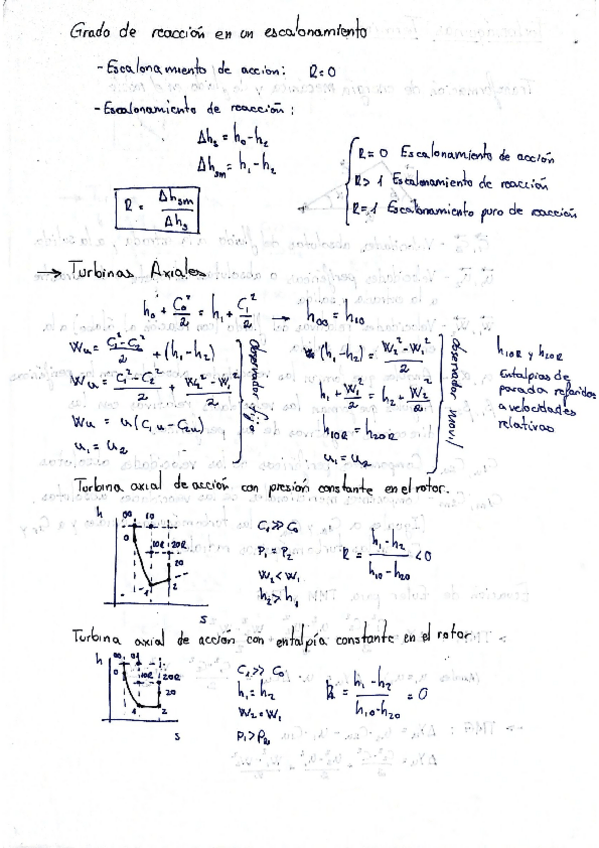 Grado de reacción en un escalonamiento
- Escalonamiento de acción: R=0
- Escalonamiento de reacción:
Δhs = h0 - h2
Δhsm = h1 - h2
R = Δhsm / Δhs
R = 0 Escalonamiento de acción
R > 1 Escalonamiento de reacción
R = 1 Escalonamiento puro de reacción
→ Turbinas Axiales
h0 + C0²/2 = h1 + C1²/2 → h00 = h10
Wu = (C1² - C2²)/2 + (h1 - h2)
Wu = (C1² - C2²)/2 + (W2² - W1²)/2
Wu = u(C1u - C2u)
u1 = u2
Observador fijo
(h1 - h2) = (W2² - W1²)/2
h1 + W1²/2 = h2 + W2²/2
h10R = h20R
u1 = u2
Observador movil
h10R y h20R
Entalpias de
parada referidas
a velocidades
relativas
Turbina axial de acción con presión constante en el rotor.
h
00 10
0
10R 20R
20
1
2
s
C1 >> C0
P1 = P2
W2 < W1
h2 > h1
R = (h1 - h2)/(h10 - h20) < 0
Turbina axial de acción con entalpía constante en el rotor
h
00 01
0
10R 20R
20
1 2
s
C1 >> C0
h1 = h2
W2 = W1
P1 > P2
R = (h1 - h2)/(h10 - h20) = 0